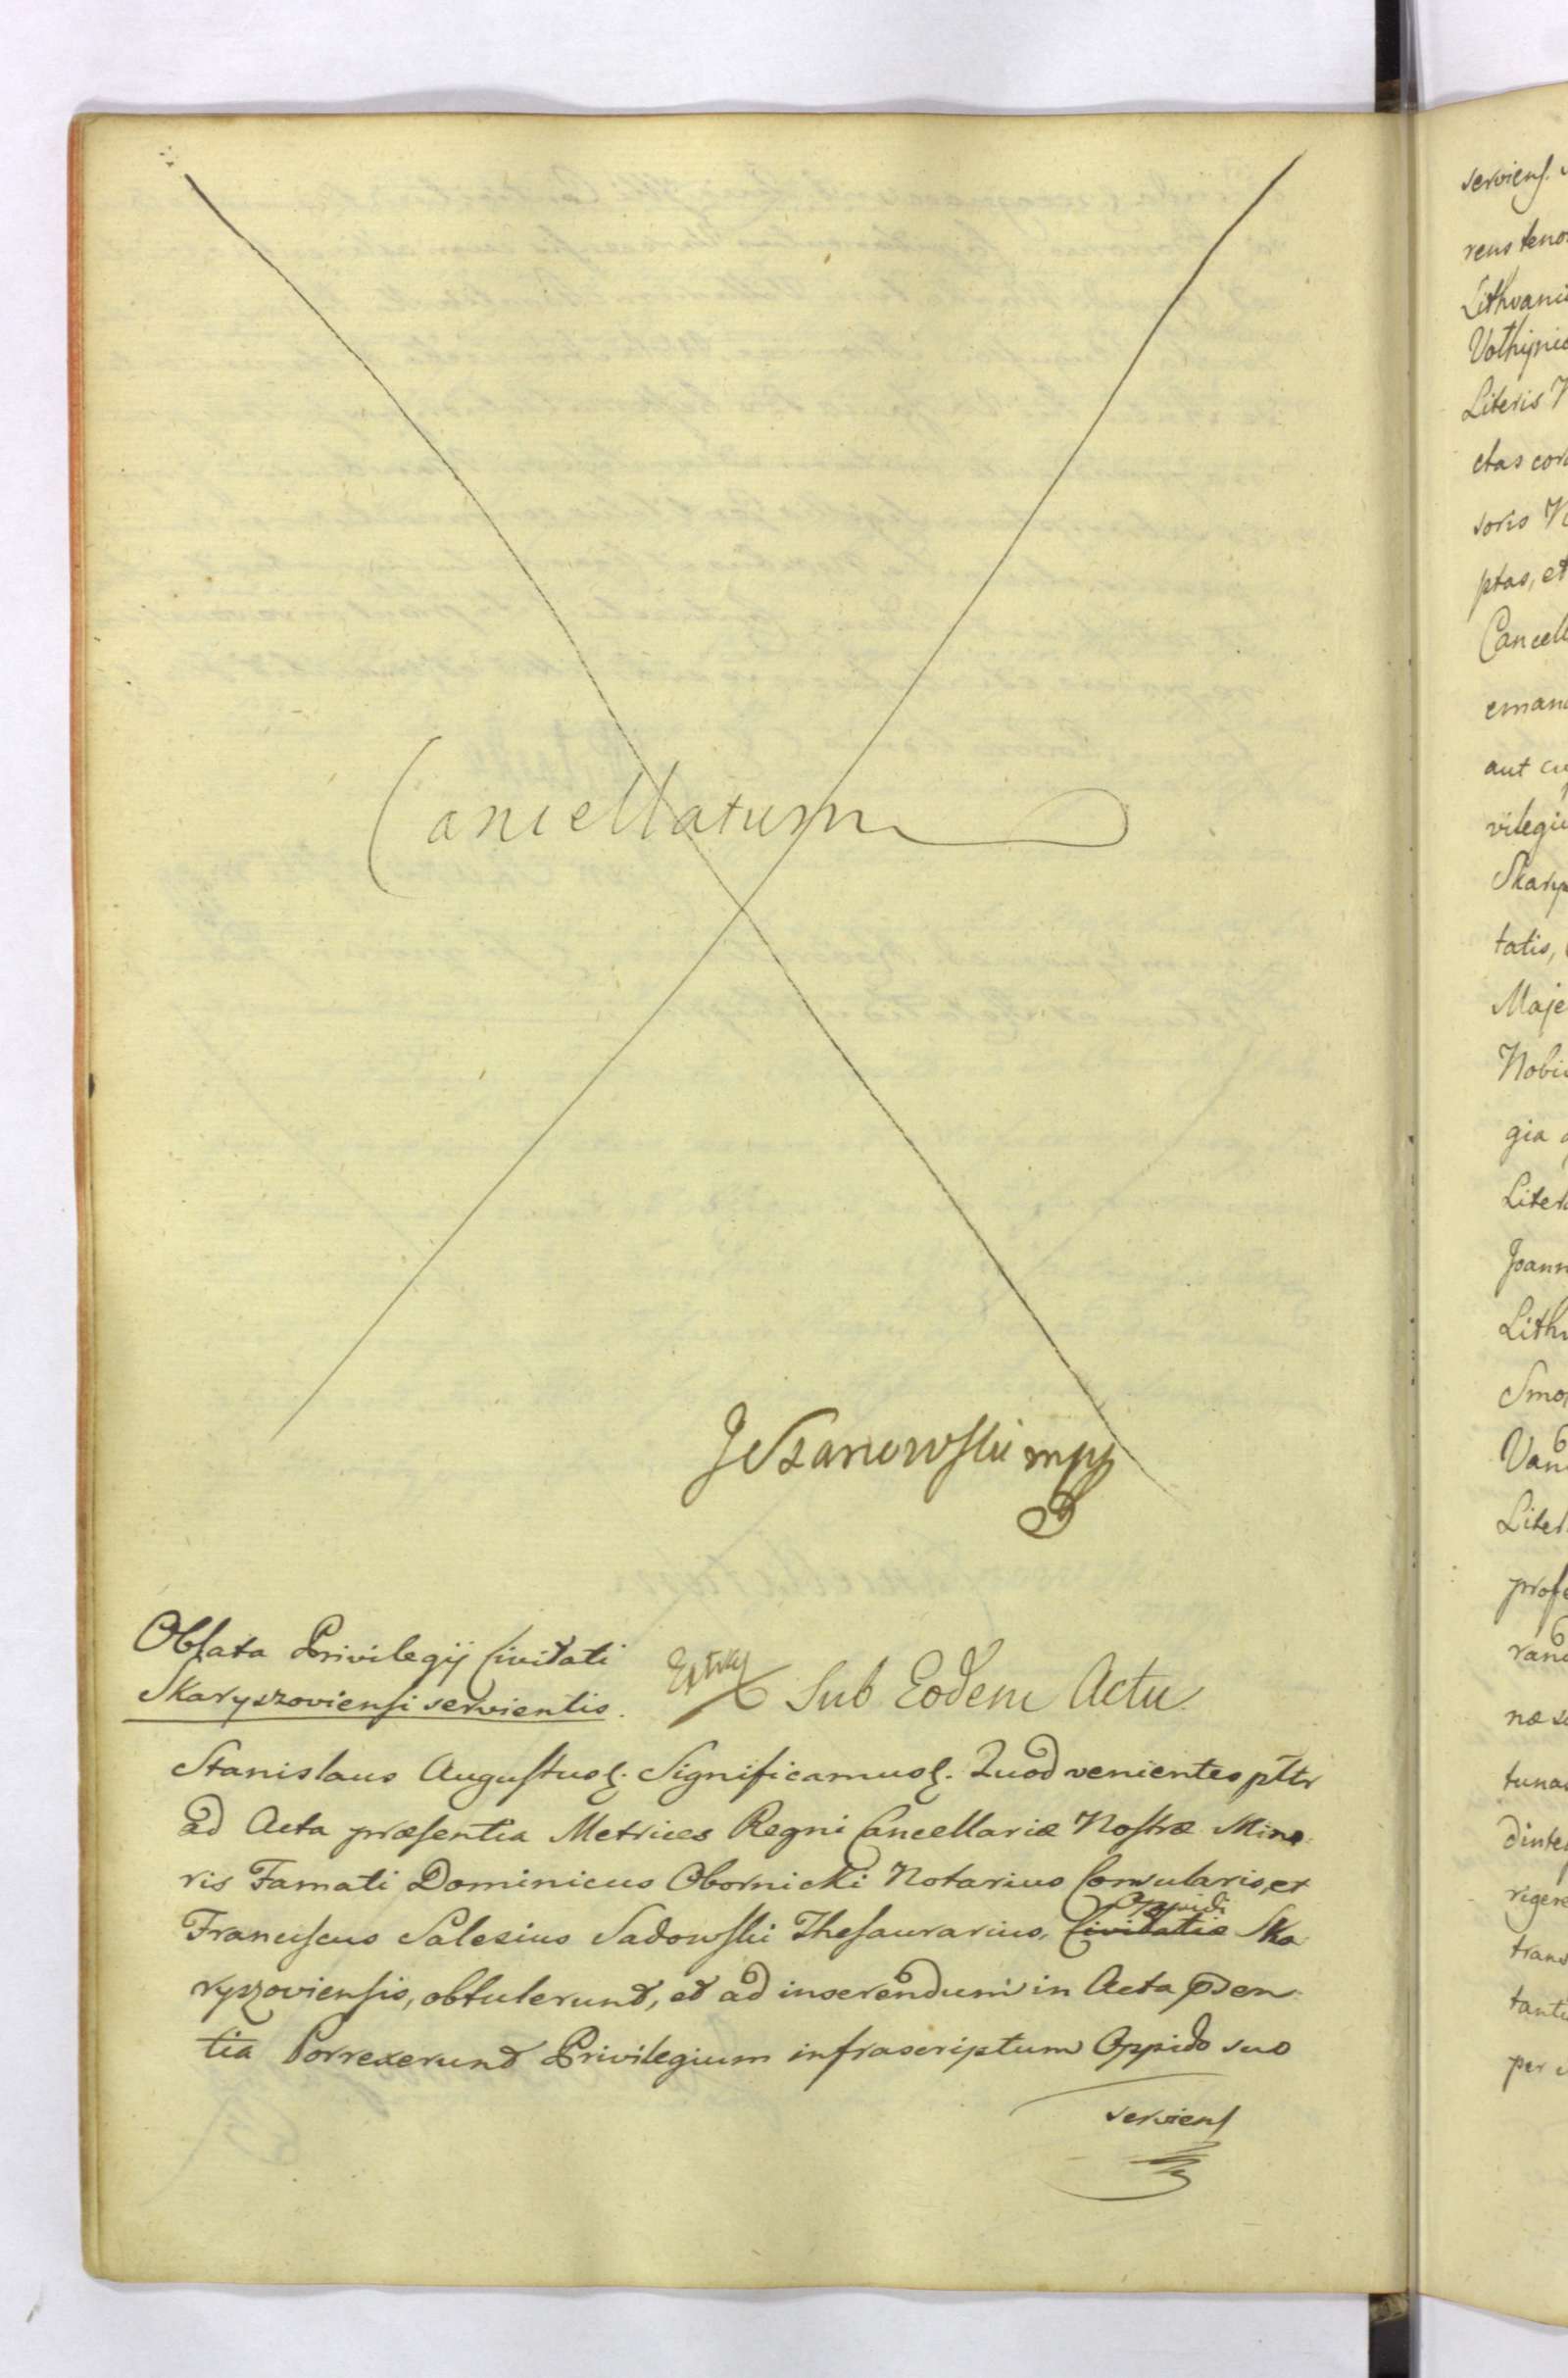 Cancellatum
JCzanowski mpp
Oblata Privilegij Civitati
Skaryszoviensi servientis.
Extrad
Sub Eodem Actu.
Stanislaus Augustus &. Significamus &. Quod venientes pltr
ad Acta præsentia Metrices Regni Cancellariæ Nostræ Mino-
ris Famati Dominicus Obornicki Notarius Consularis, et
Franciscus Salesius Sadowski Thesaurarius, Civitatis Oppidi Ska-
ryszoviensis, obtulerund, et ad inserendum in Acta pден-
tia Porrexerund Privilegium infrascriptum Oppido suo
serviens
serviens.
rens teno
Lithvani
Volhynia
Literis
ctas cor
soris
ptas, et
Cancell
emana
aut cu
vilegiu
Skary
tatis,
Maje
Nobi
gia
Liter
Joann
Lith
Smo
Van
Liter
prof
rand
næ
tunas
dinte
rigere
trans
tant
per